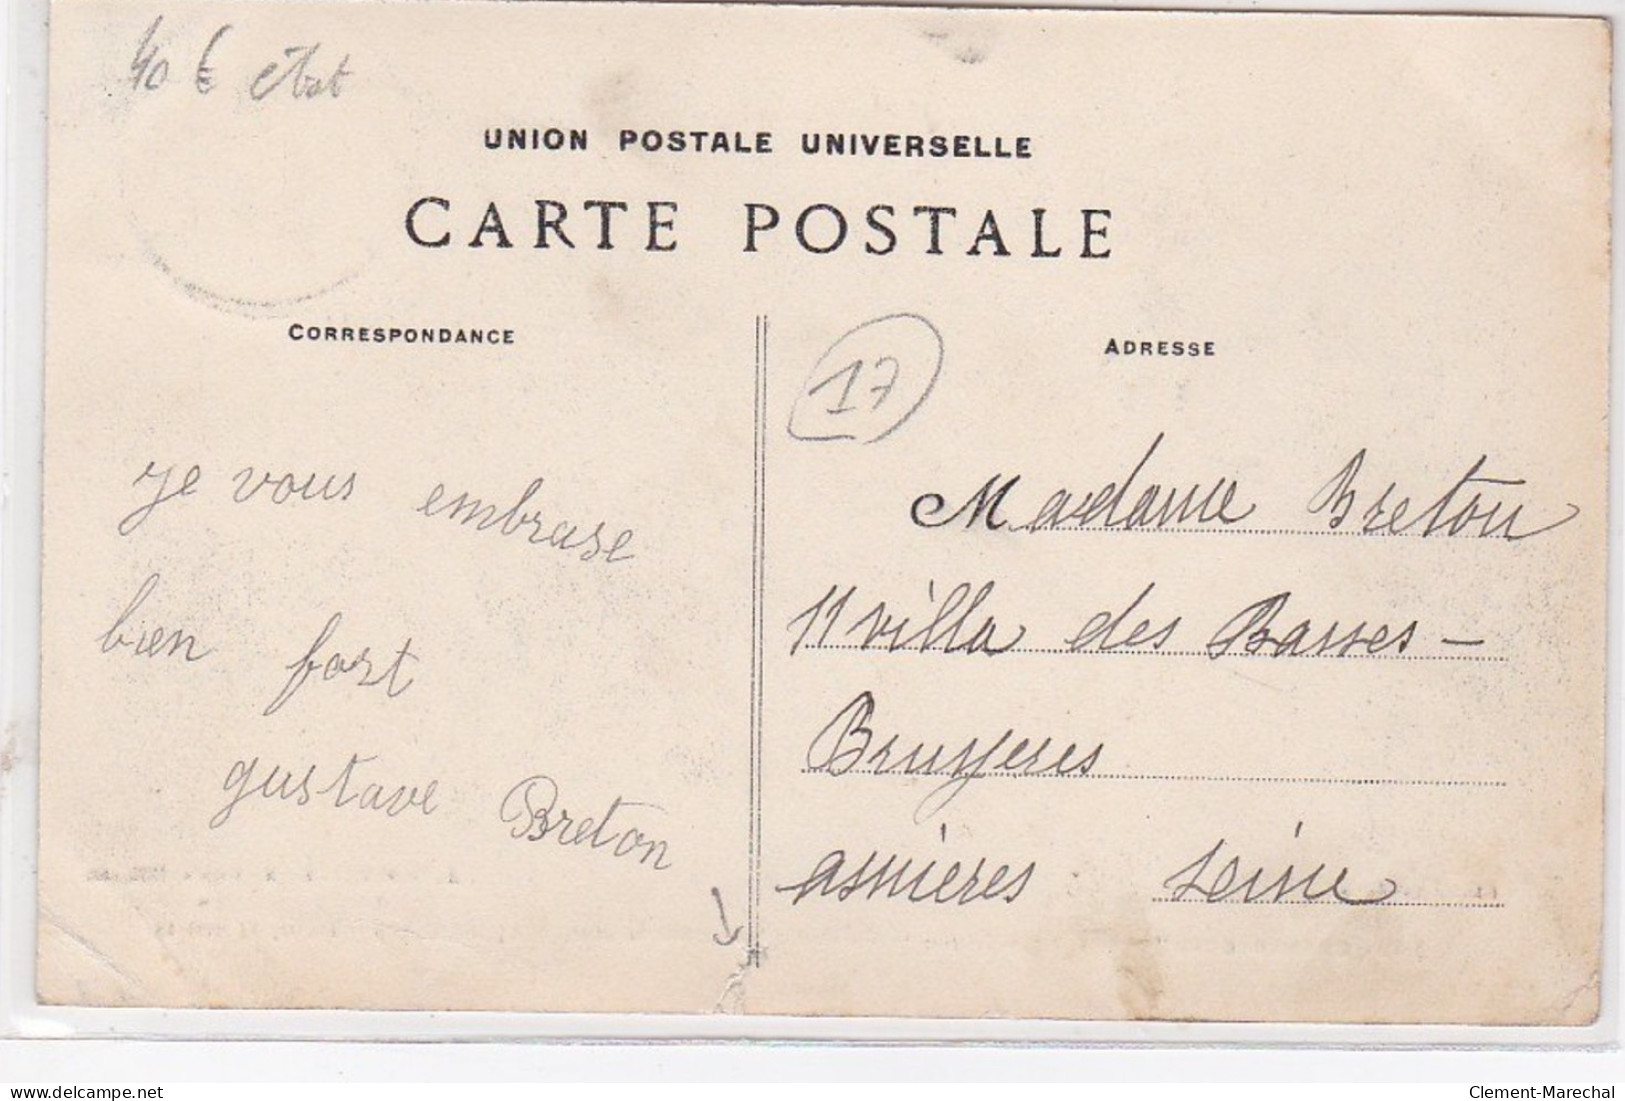 40 € état
UNION POSTALE UNIVERSELLE
CARTE POSTALE
CORRESPONDANCE
ADRESSE
17
je vous embrase
bien fort
gustave Breton
Madame Breton
11 villa des Basses-
Bruyeres
asnieres Seine
delcampe.net
Clement-Marechal